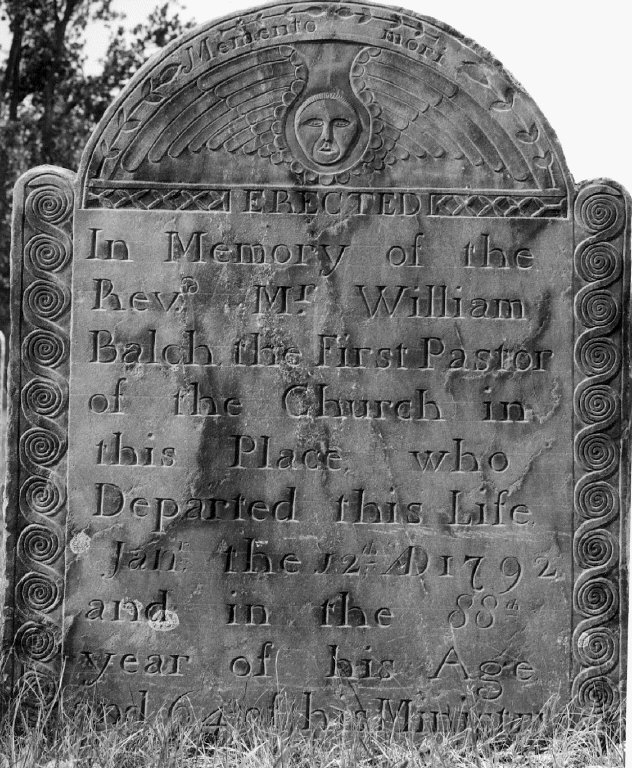 Memento mori
ERECTED
In Memory of the
Revd. Mr. William
Balch, the First Pastor
of the Church in
this Place, who
Departed this Life,
Janr. the 12th. AD 1792
and in the 88th
year of his Age
and 64th of his Ministry